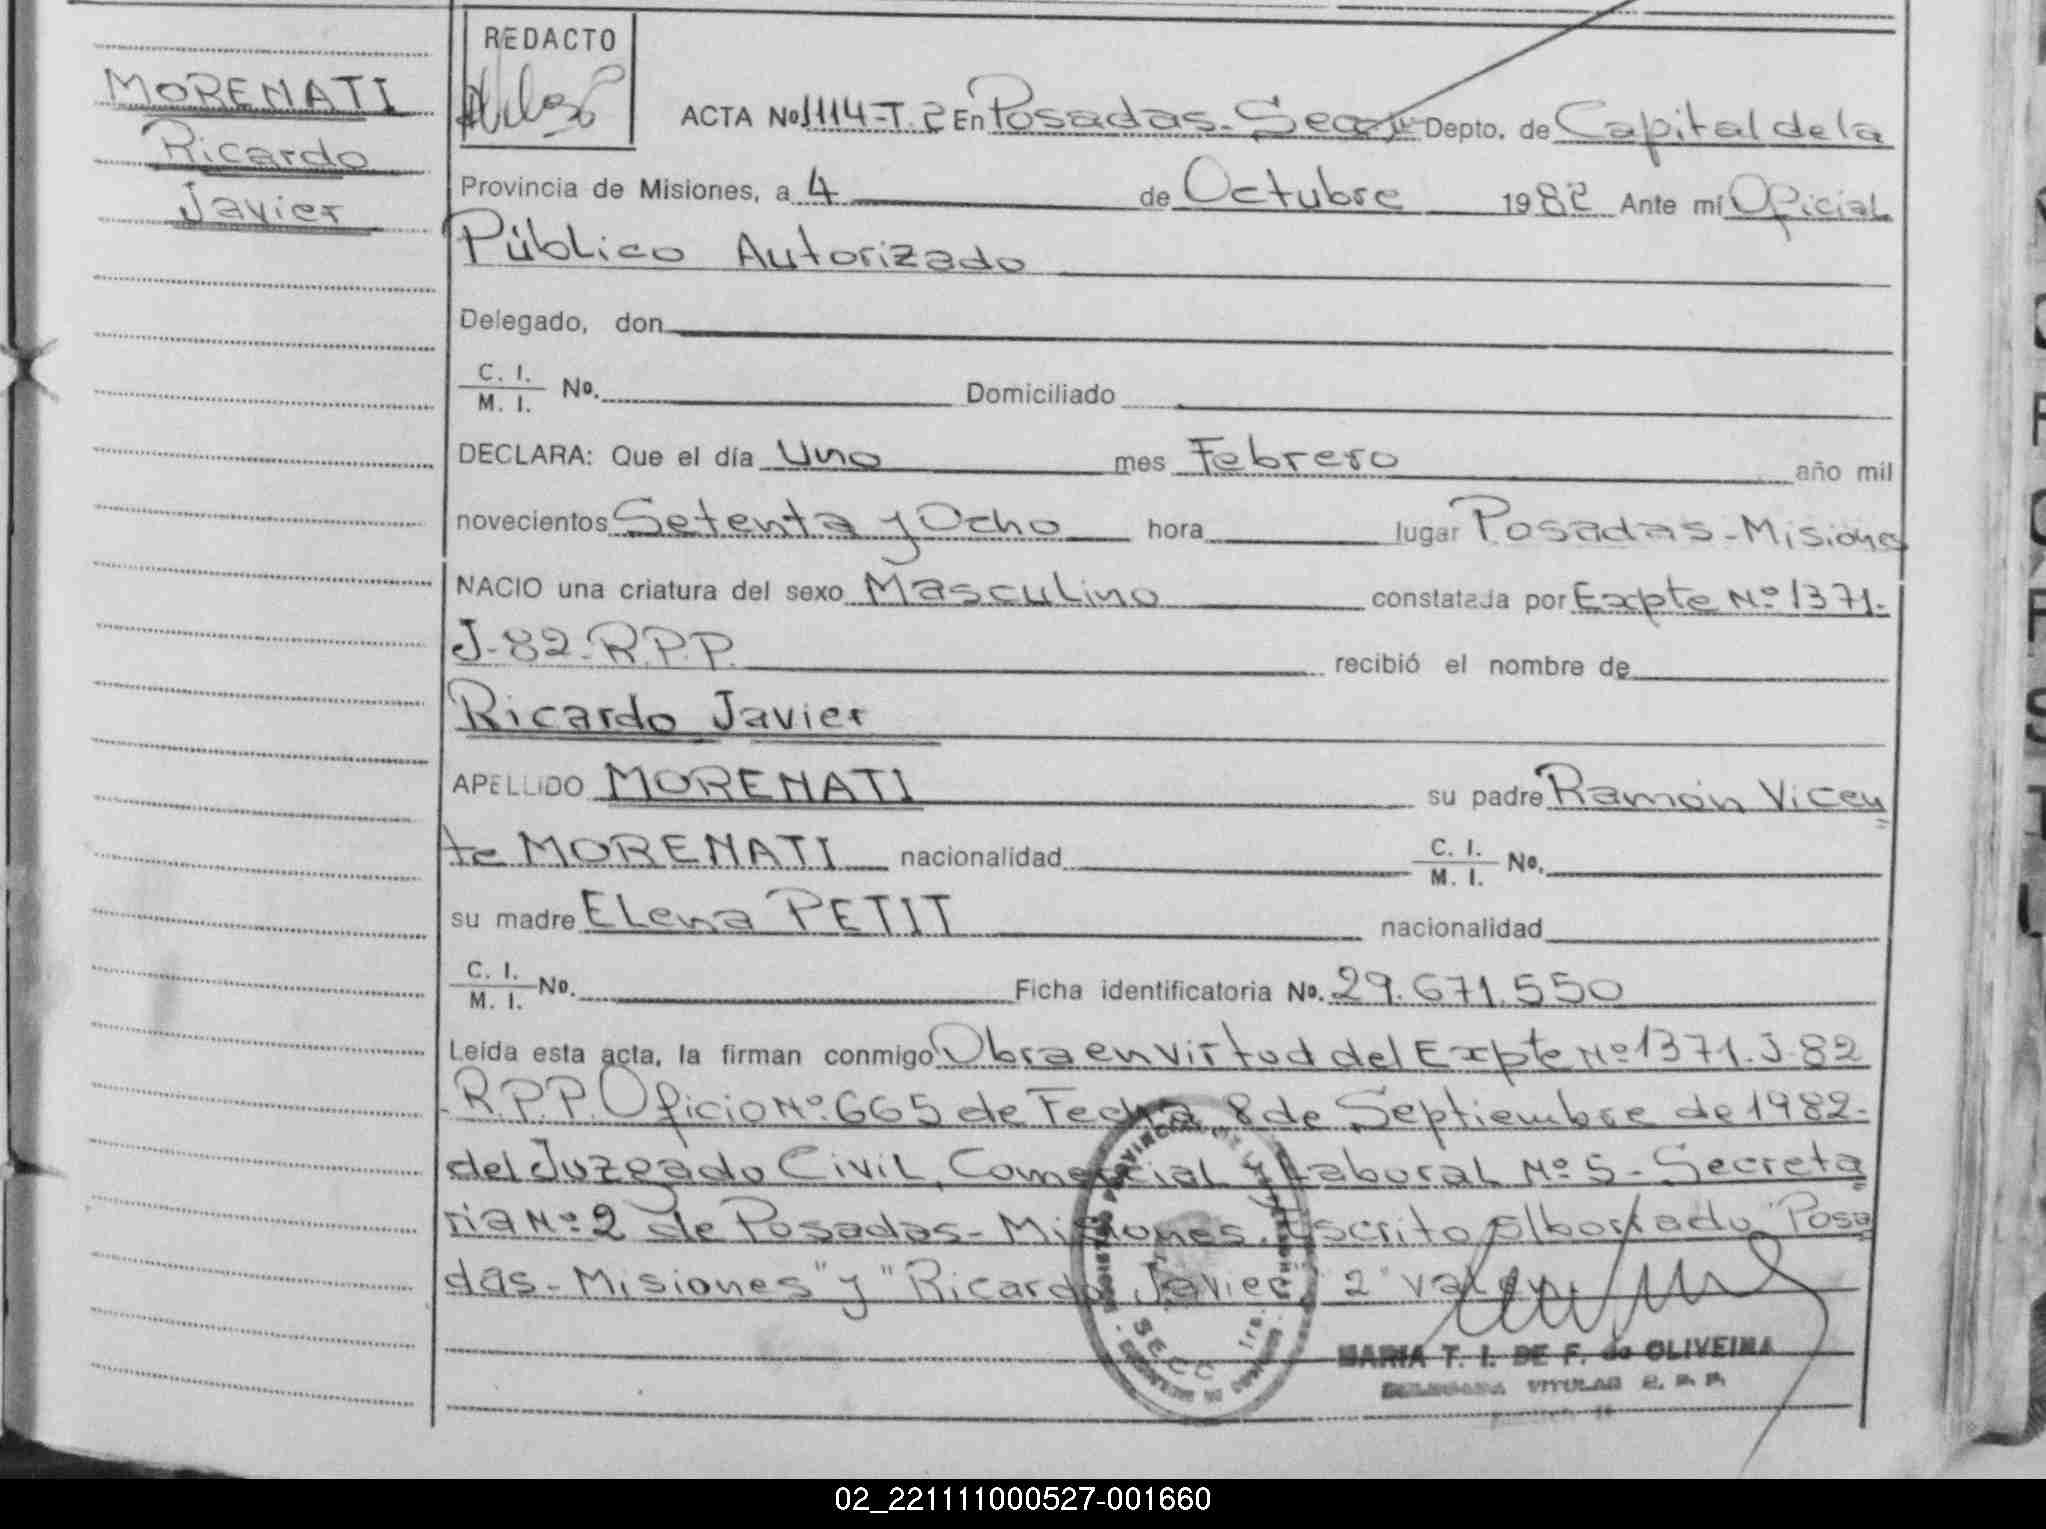 MORENATI
Ricardo
Javier
REDACTO
ACTA No 1114-T.2 En Posadas- Secc Depto. de Capital de la
Provincia de Misiones, a 4 de Octubre 1982 Ante mí Oficial
Público Autorizado
Delegado, don
C. I.
M. I. No. Domiciliado
DECLARA: Que el día Uno mes Febrero año mil
novecientos Setenta y Ocho hora lugar Posadas-Misiones
NACIO una criatura del sexo Masculino constatada por Expte Nº 1371.
J-82-R.P.P. recibió el nombre de
Ricardo Javier
APELLIDO MORENATI su padre Ramón Vicen
te MORENATI nacionalidad C. I.
M. I. No.
su madre ELena PETIT nacionalidad
C. I.
M. I. No. Ficha identificatoria No. 29.671.550
Leída esta acta, la firman conmigo Obra en virtud del Expte Nº 1371.J-82
R.P.P. Oficio Nº 665 de Fecha 8 de Septiembre de 1982-
del Juzgado Civil, Comercial y Laboral Nº 5- Secreta
ria Nº 2 de Posadas- Misiones. Escrito s/borrado "Posa
das-Misiones" y "Ricardo Javier 2" valen
MARIA T. I. DE F. de OLIVEIRA
DELEGADA TITULAR R. P. P.
SECC 1ra.
02_221111000527-001660